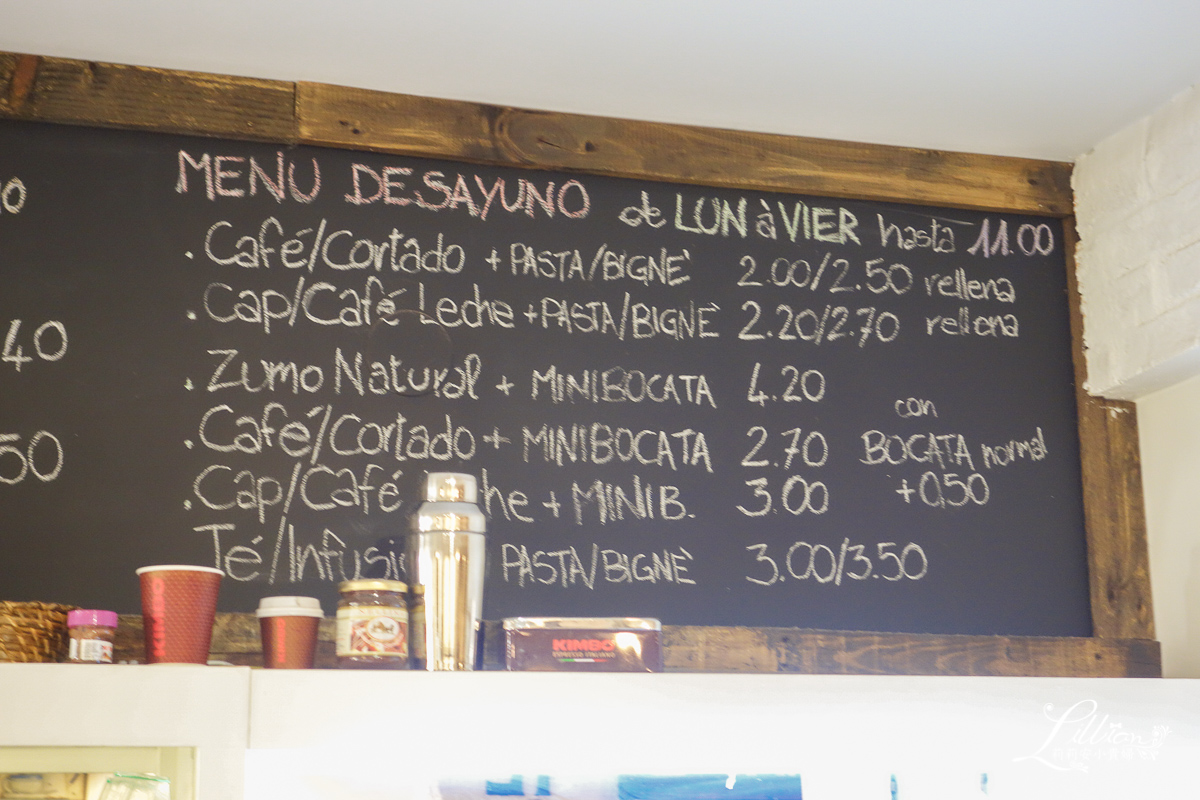 MENU DESAYUNO de LUN à VIER hasta 11.00
. Café/Cortado + PASTA/BIGNÈ 2.00/2.50 rellena
. Cap/Café Leche + PASTA/BIGNÈ 2.20/2.70 rellena
. Zumo Natural + MINIBOCATA 4.20
. Café/Cortado + MINIBOCATA 2.70
. Cap/Café he + MINIB. 3.00
con
BOCATA normal
+0,50
Té/Infusi PASTA/BIGNÈ 3.00/3.50
40
50
KIMBO
ESPRESSO ITALIANO
Lillian